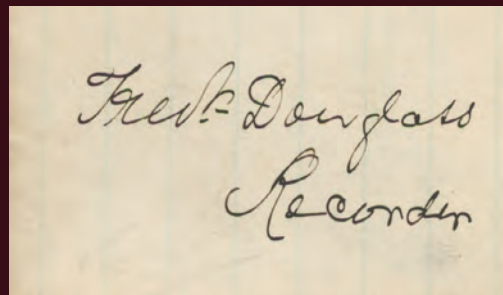 Fredk Douglass
Recorder